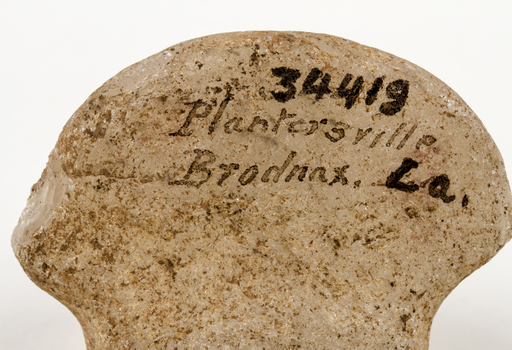 34419
Plantersville
Brodnax, La.